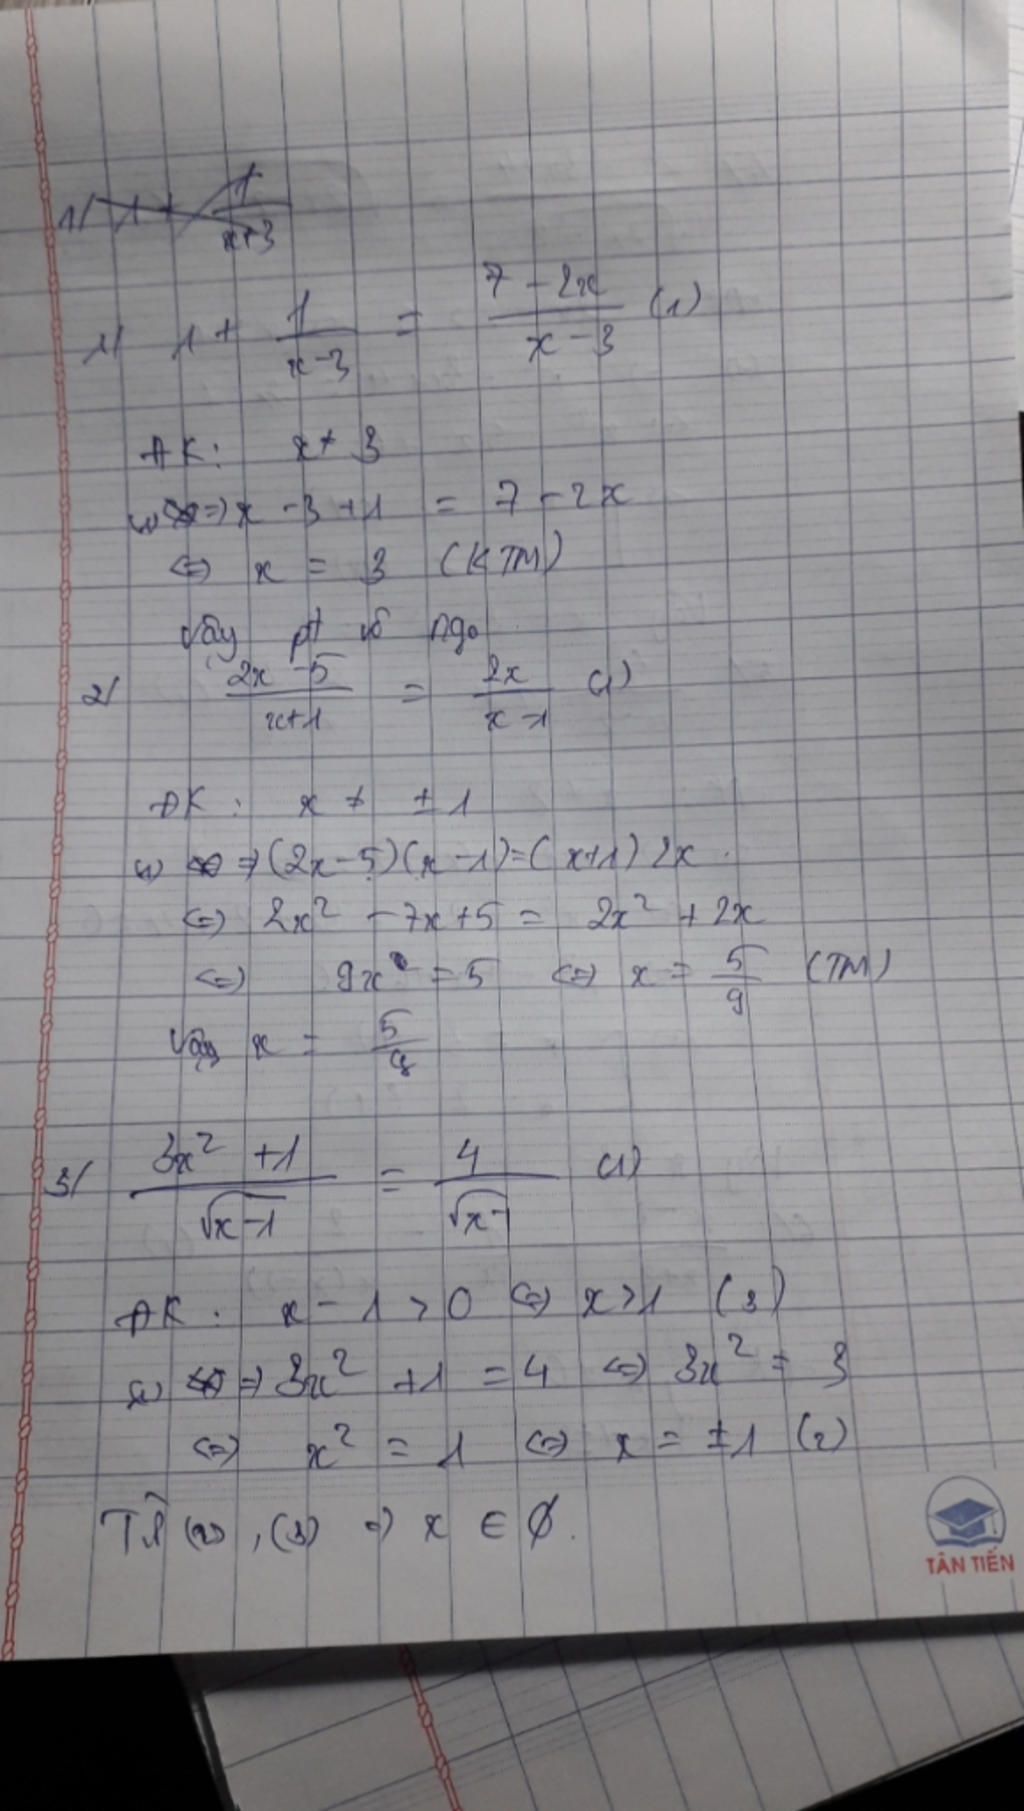 1/ 1 + 1/(x+3)
1/ 1 + 1/(x-3) = (7-2x)/(x-3) (1)
ĐK: x ≠ 3
(1) ⇒ x - 3 + 1 = 7 - 2x
⇔ x = 3 (KTM)
Vậy pt vô ngo
2/ (2x-5)/(x+1) = 2x/(x-1) (1)
ĐK: x ≠ ±1
(1) ⇒ (2x-5)(x-1) = (x+1) 2x.
⇔ 2x² - 7x + 5 = 2x² + 2x
⇔ 9x = 5 ⇔ x = 5/9 (TM)
Vậy x = 5/9
3/ (3x² + 1)/√(x-1) = 4/√(x-1) (1)
ĐK: x - 1 > 0 ⇔ x > 1 (3)
(1) ⇒ 3x² + 1 = 4 ⇔ 3x² = 3
⇔ x² = 1 ⇔ x = ±1 (2)
Từ (2), (3) ⇒ x ∈ ∅.
TÂN TIẾN